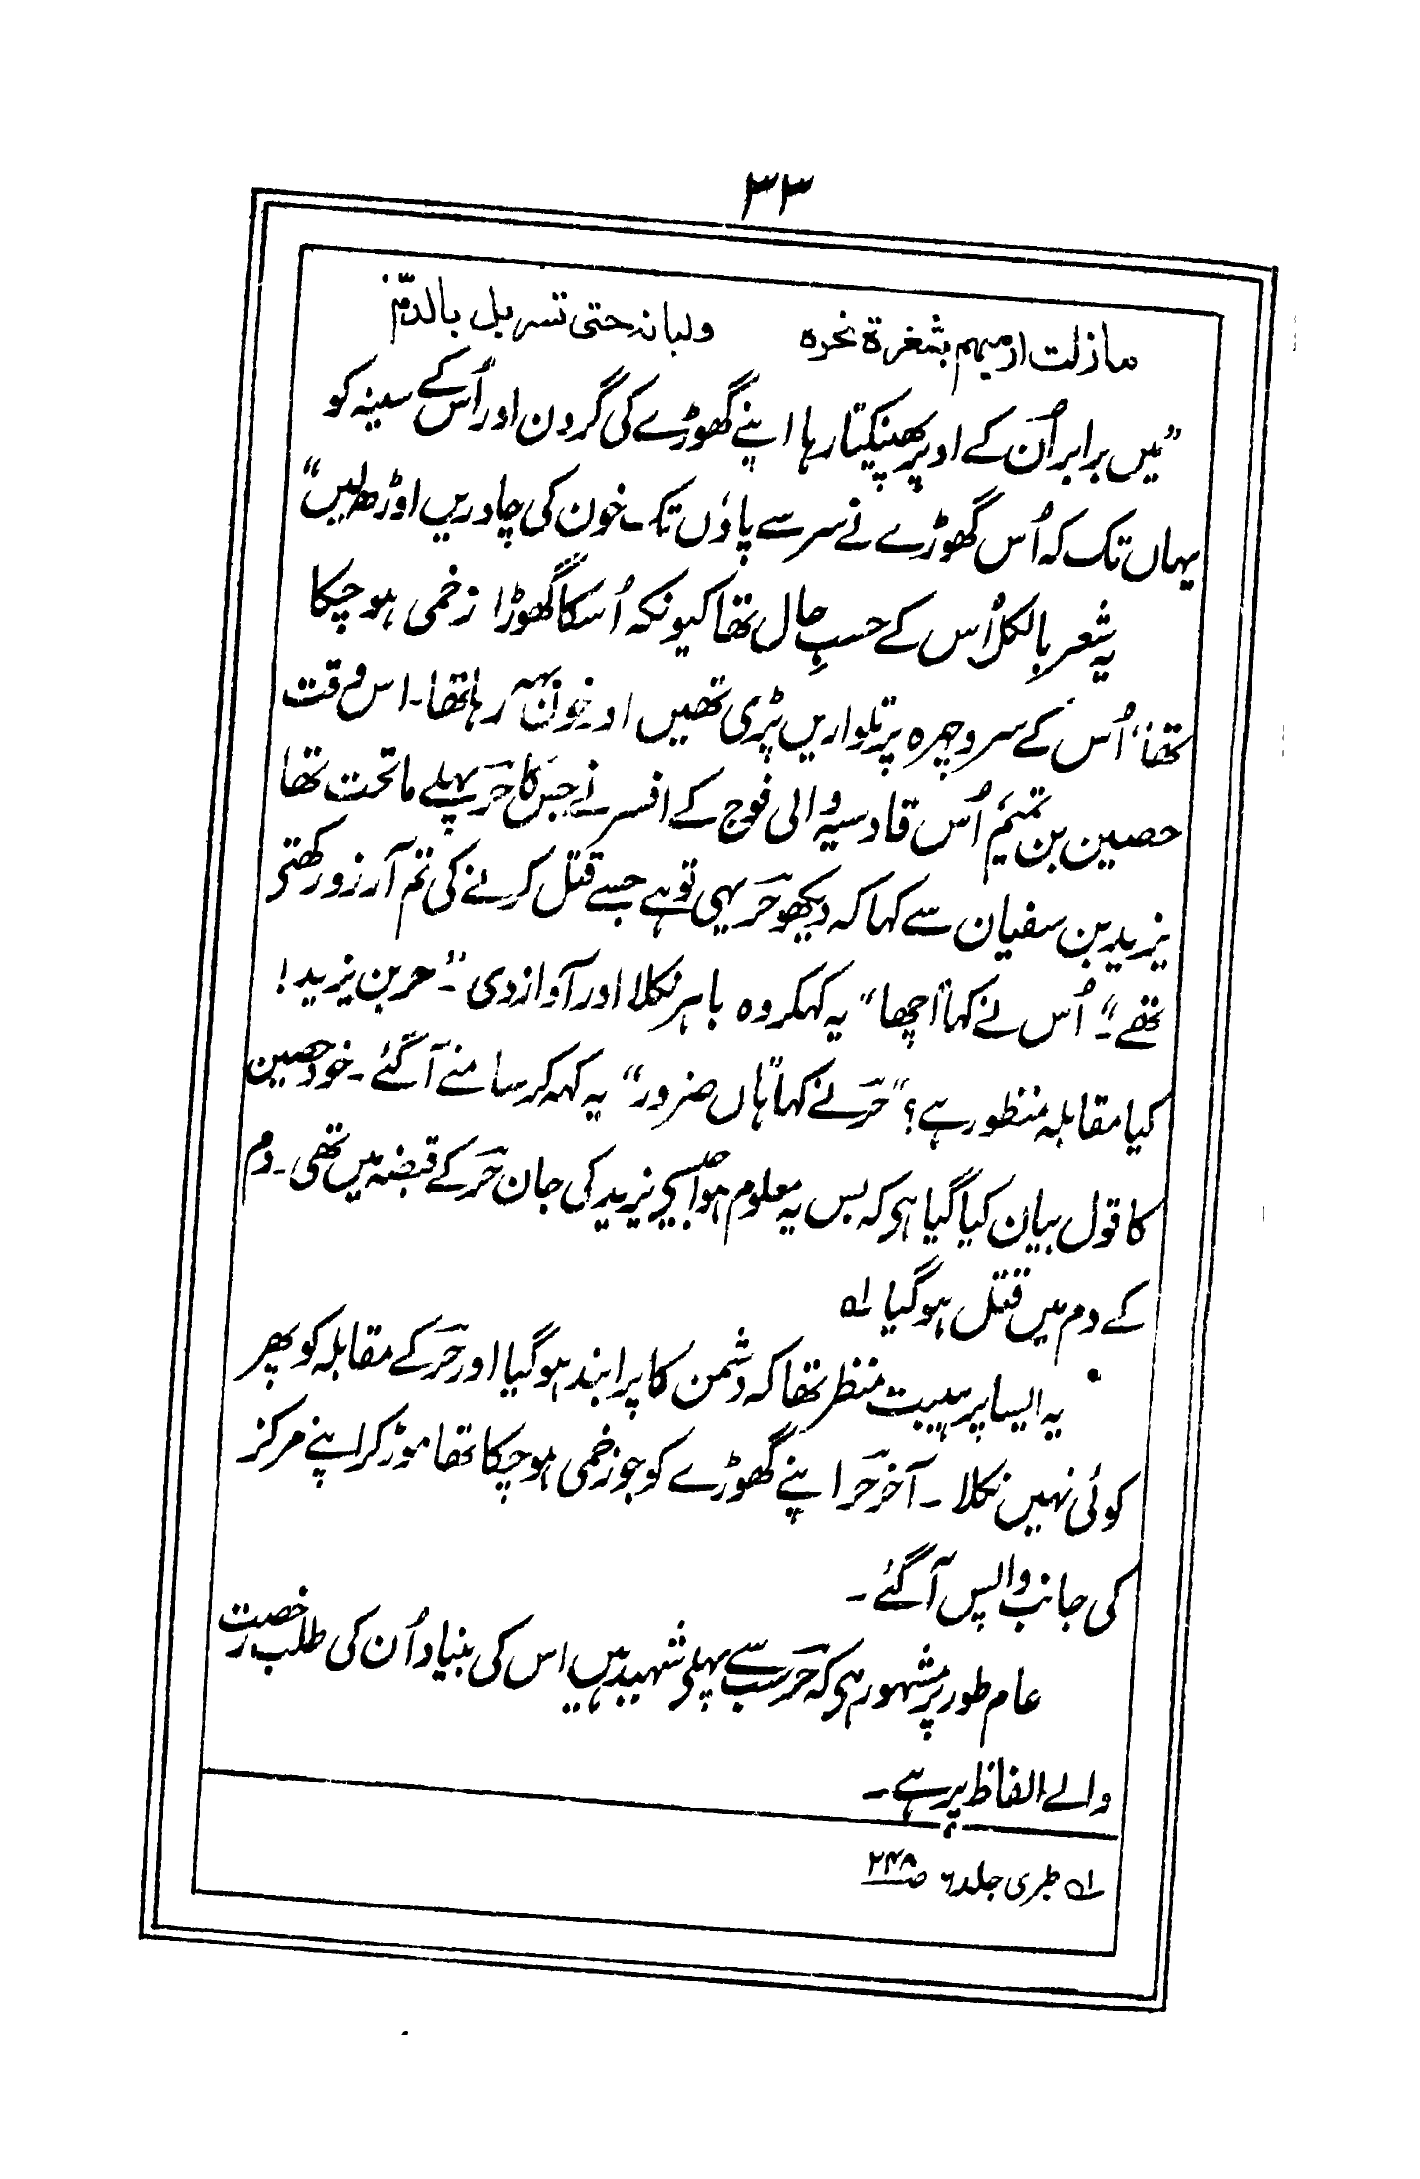 ۳۳
مازلت ارمیہم بثغرۃ نحرہ ولبانہ حتی تسربل بالدم
”میں برابر اُن کے اوپر پھینکتا رہا اپنے گھوڑے کی گردن اور اُس کے سینہ کو
یہاں تک کہ اُس گھوڑے نے سر سے پاؤں تک خون کی چادریں اوڑھ لیں“
یہ شعر بالکل اُس کے حسبِ حال تھا کیونکہ اُسکا گھوڑا زخمی ہو چکا
تھا، اُس کے سر و چہرہ پر تلواریں پڑی تھیں اور خون بہہ رہا تھا۔ اس وقت
حصین بن تمیم اُس قادسیہ والی فوج کے افسر نے جس کا حر پہلے ماتحت تھا
یزید بن سفیان سے کہا کہ دیکھو حر یہی تو ہے جسے قتل کرنے کی تم آرزو رکھتے
تھے“۔ اُس نے کہا ”اچھا“ یہ کہکر وہ باہر نکلا اور آواز دی۔ ”حر بن یزید!
کیا مقابلہ منظور ہے؟“ حر نے کہا ”ہاں ضرور“ یہ کہہ کر سامنے آگئے۔ خود حصین
کا قول بیان کیا گیا ہی کہ بس یہ معلوم ہوا جیسے یزید کی جان حر کے قبضہ میں تھی۔ دم
کے دم میں قتل ہو گیا ؂۱
یہ ایسا پر ہیبت منظر تھا کہ دشمن کا پرا بند ہو گیا اور حر کے مقابلہ کو پھر
کوئی نہیں نکلا۔ آخر حر اپنے گھوڑے کو جو زخمی ہو چکا تھا موڑ کر اپنے مرکز
کی جانب واپس آگئے۔
عام طور پر مشہور ہی کہ حر سب سے پہلے شہید ہیں اس کی بنیاد اُن کی طلب رخصت
والے الفاظ پر ہے۔
؂۱ طبری جلد ۶ ص ۲۴۸